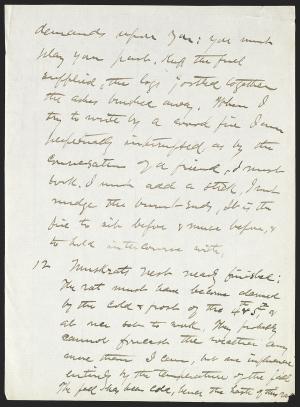 demands upon you: you must
play your part, keep the fuel
supplied, the logs jostled together
the ashes brushed away. When I
try to write by a wood fire I am
perpetually interrupted, as by the
conversation of a friend, I must
look, I must add a stick, I must
nudge the burnt ends, It is the
fire to sit before & muse before, &
to hold intercourse with,
12 Muskrats nest nearly finished:
The rat must have become alarmed
by the cold & frost of the 4th & 5th
at set to work. They probably
cannot foresee the weather any
more than I can, but are influenced
entirely by the temperature of the fall
The fall has been cold, hence the haste of this rat